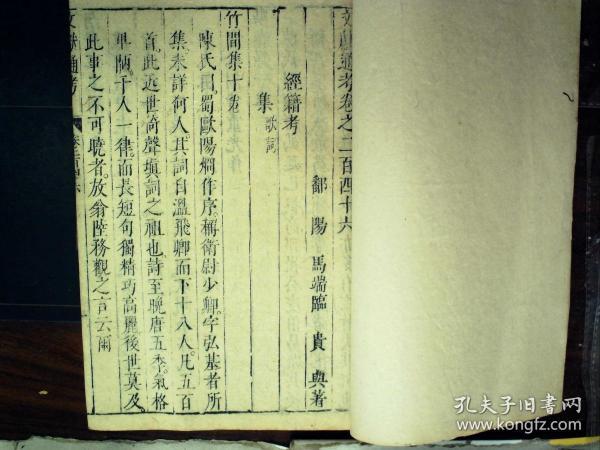 文獻通考卷之二百四十六
鄱陽馬端臨貴與著
經籍考
集歌詞
竹間集十卷
陳氏曰蜀歐陽烱作序稱衛尉少卿字弘基者所
集未詳何人其詞自溫飛卿而下十八人凡五百
首此近世倚聲填詞之祖也詩至晚唐五季氣格
卑陋千人一律而長短句獨精巧高麗後世莫及
此事之不可曉者放翁陸務觀之言云爾
文獻通考
孔夫子旧书网
www.kongfz.com